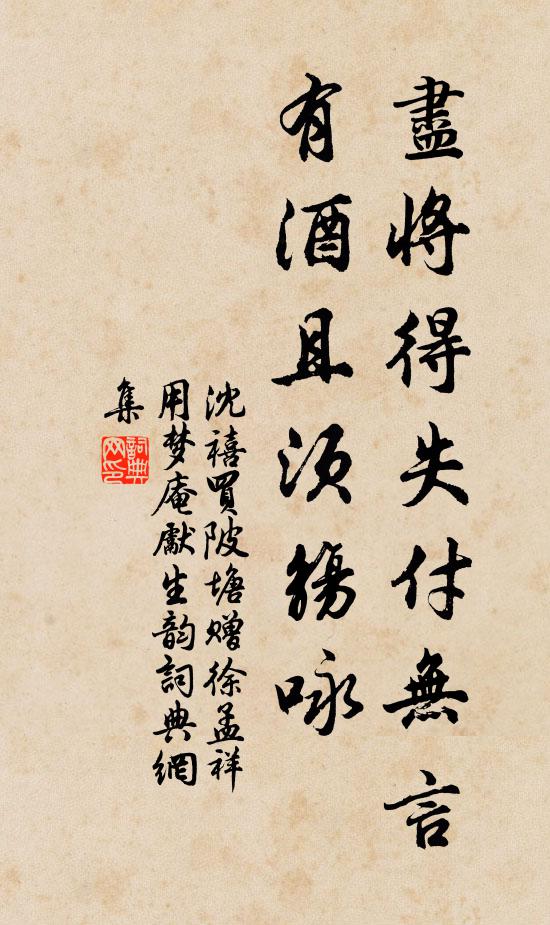 盡將得失付無言
有酒且須觴咏
沈禧買陂塘贈徐孟祥
用梦庵獻生韵詞典網
集
詞典
网印